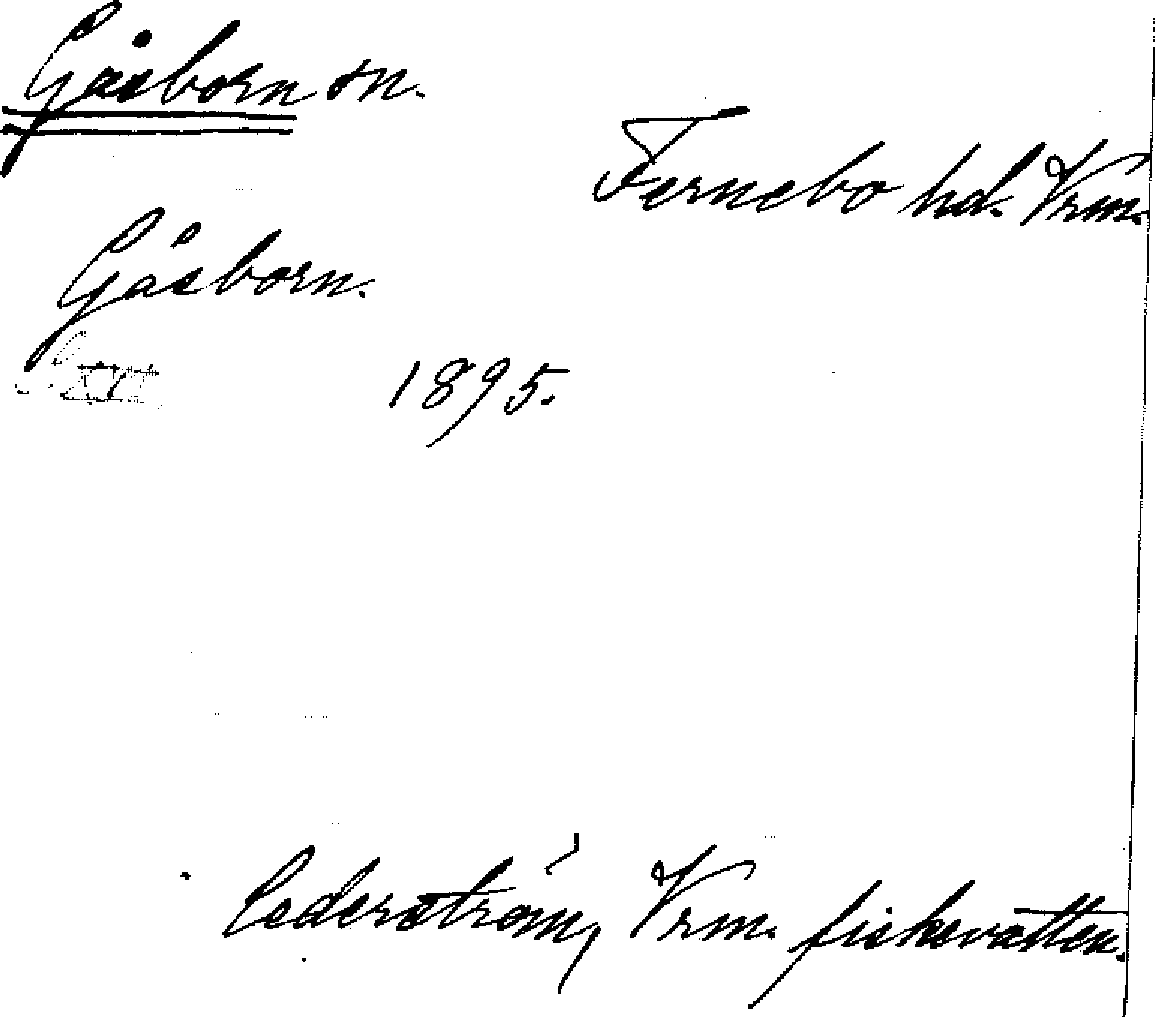 Gåsborn sn.
Fernebo hd. Vrm.
Gåsborn.
1895.
Cederström, Vrm. fiskevatten.